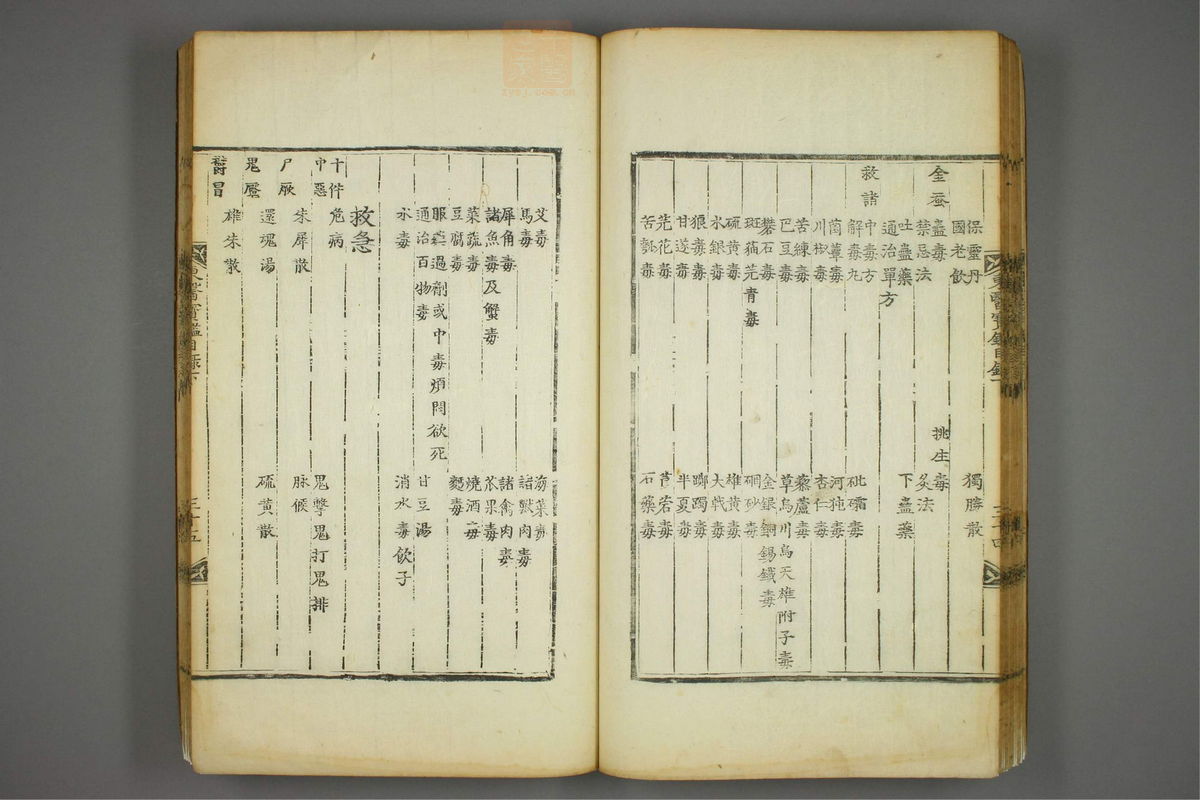 保靈丹 獨勝散
國老飲
金蚕蠱毒 挑生毒
禁忌法 灸法
吐蠱藥 下蠱藥
通治單方
救諸中毒方
解毒丸 砒礵毒
菌蕈毒 河㹠毒
川椒毒 杏仁毒
苦練毒 藜蘆毒
巴豆毒 草烏川烏天雄附子毒
礬石毒 金銀銅錫鐵毒
斑猫芫青毒 硇砂毒
硫黃毒 雄黃毒
水銀毒 大戟毒
狼毒毒 躑躅毒
甘遂毒 半夏毒
芫花毒 莨菪毒
苦瓠毒 石藥毒
東醫寶鑑目錄下 三十四
艾毒
馬毒 諸獸肉毒
犀角毒 諸禽肉毒
諸魚毒及蟹毒 苽果毒
菜蔬毒 燒酒毒
豆腐毒 麪毒
服藥過劑或中毒煩悶欲死
通治百物毒 甘豆湯
水毒 消水毒飲子
救急
十件危病
中惡 鬼擊鬼打鬼排
朱犀散 脉候
尸厥
還魂湯 硫黃散
鬼魘
雄朱散
鬱冒
東醫寶鑑目錄下 三十五